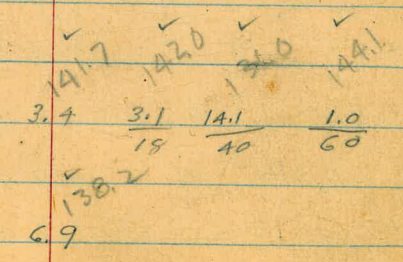 ✓ ✓ ✓ ✓
141.7 142.0 131.0 144.1
3.4 3.1/18 14.1/40 1.0/60
✓
138.2
6.9